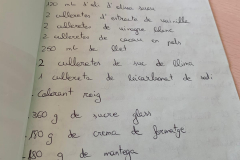 120 ml d'oli d'oliva suau
2 culleretes d'extracte de vainilla
2 culleretes de vinagre blanc
2 culleretes de cacau en pols
250 ml de llet
2 culleretes de suc de llima
1 cullereta de bicarbonat de sodi
Colorant roig
360 g de sucre glass
150 g de crema de formatge
180 g de mantega